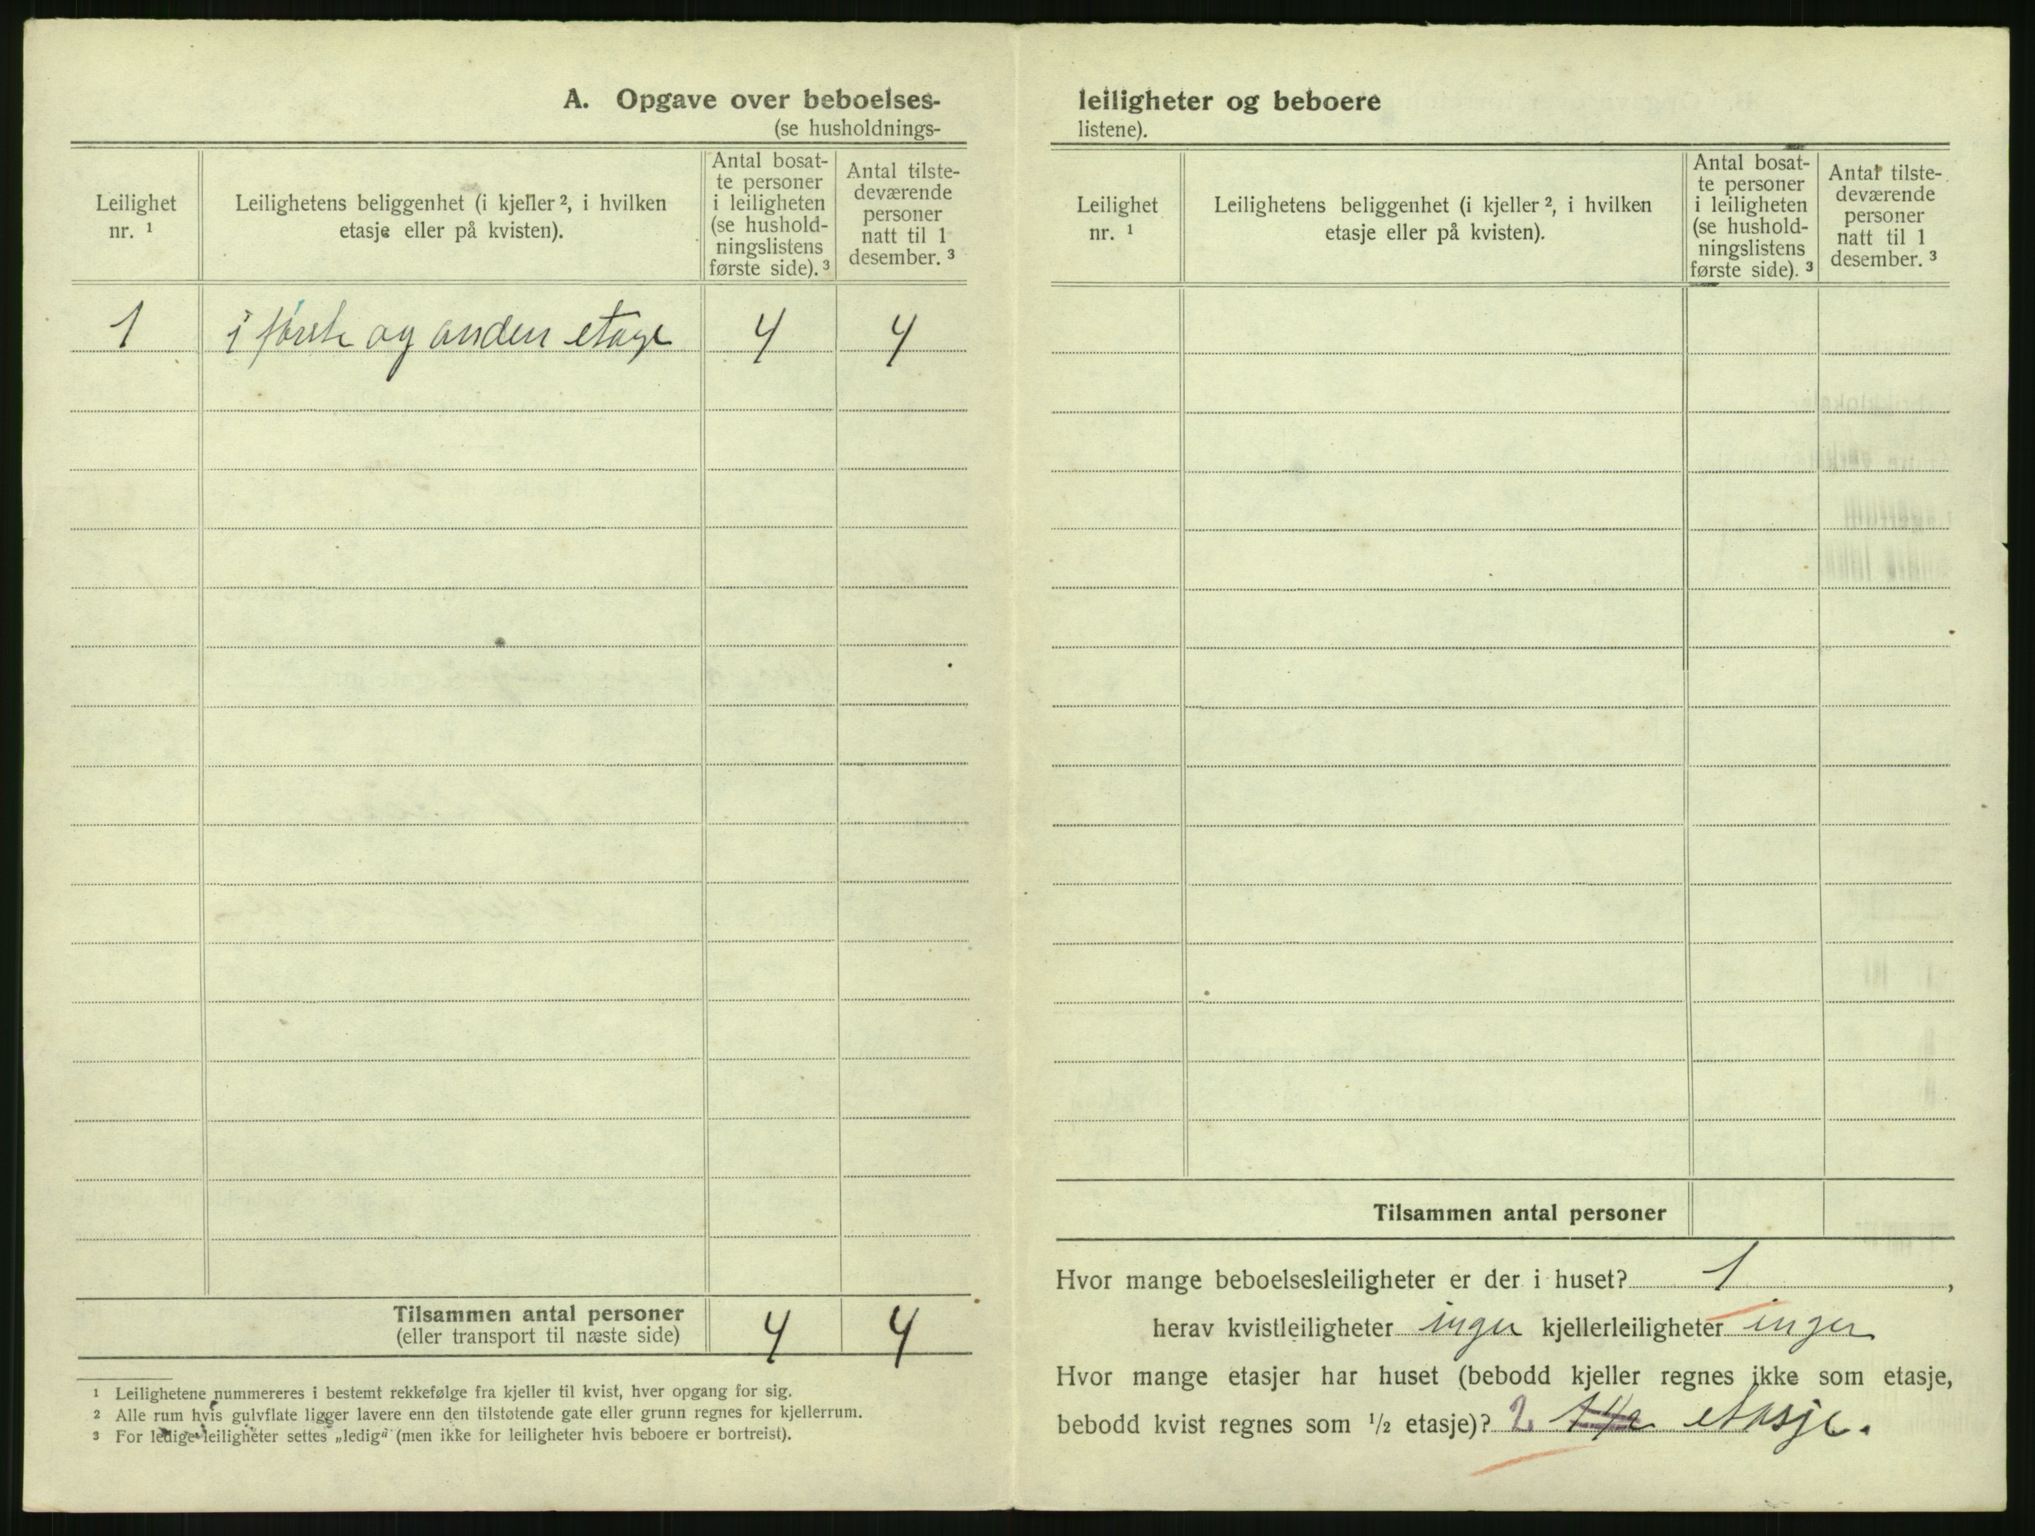 A. Opgave over beboelses-
(se husholdnings-
Leilighet
nr. ¹
Leilighetens beliggenhet (i kjeller ², i hvilken
etasje eller på kvisten).
Antal bosat-
te personer
i leiligheten
(se hushold-
ningslistens
første side). ³
Antal tilste-
deværende
personer
natt til 1
desember. ³
1 i første og anden etage 4 4
Tilsammen antal personer
(eller transport til næste side)
4 4
¹ Leilighetene nummereres i bestemt rekkefølge fra kjeller til kvist, hver opgang for sig.
² Alle rum hvis gulvflate ligger lavere enn den tilstøtende gate eller grunn regnes for kjellerrum.
³ For ledige leiligheter settes „ledig" (men ikke for leiligheter hvis beboere er bortreist).
leiligheter og beboere
listene).
Leilighet
nr. ¹
Leilighetens beliggenhet (i kjeller ², i hvilken
etasje eller på kvisten).
Antal bosat-
te personer
i leiligheten
(se hushold-
ningslistens
første side). ³
Antal tilste-
deværende
personer
natt til 1
desember. ³
Tilsammen antal personer
Hvor mange beboelsesleiligheter er der i huset? 1,
herav kvistleiligheter ingen kjellerleiligheter ingen
Hvor mange etasjer har huset (bebodd kjeller regnes ikke som etasje,
bebodd kvist regnes som ½ etasje)? 2 1 ½ etasje.